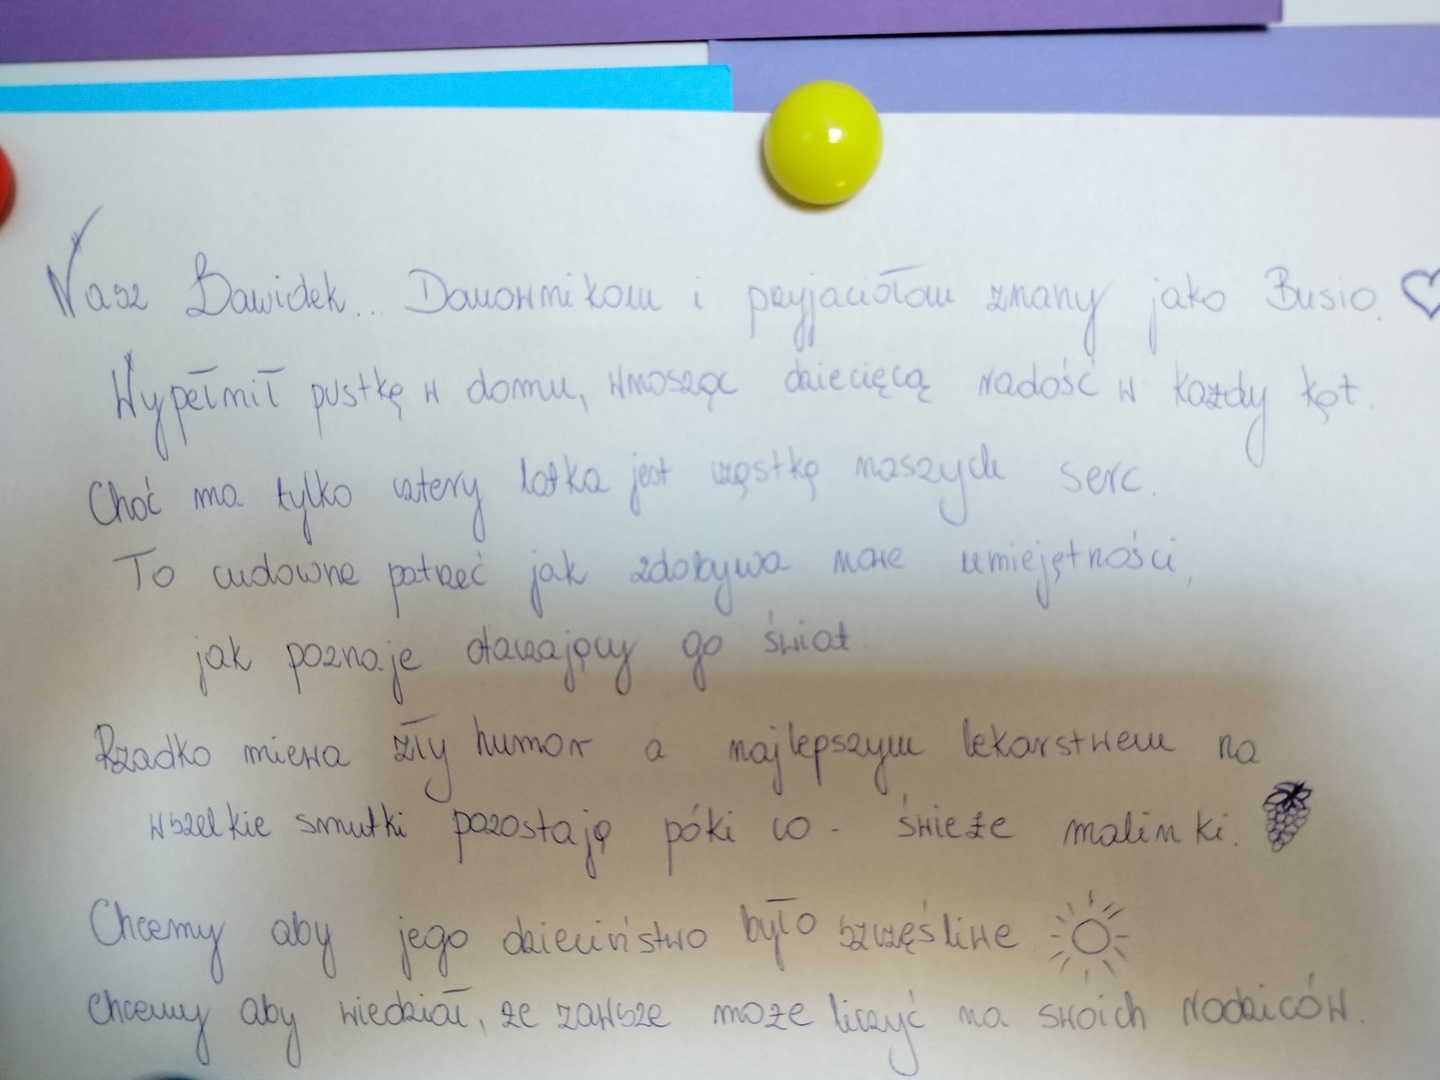 Nasz Dawidek... Domownikom i przyjaciołom znany jako Busio.
Wypełnił pustkę w domu, wnosząc dziecięcą radość w każdy kąt.
Choć ma tylko cztery latka jest cząstką naszych serc.
To cudowne patrzeć jak zdobywa nowe umiejętności,
jak poznaje otaczający go świat.
Rzadko miewa zły humor a najlepszym lekarstwem na
wszelkie smutki pozostają póki co - świeże malinki.
Chcemy aby jego dzieciństwo było szczęśliwe
Chcemy aby wiedział, że zawsze może liczyć na swoich rodziców.